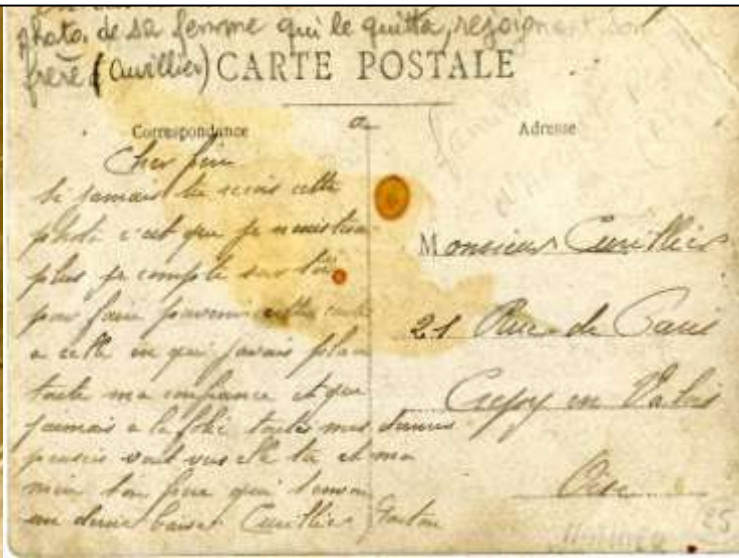 photo. de sa femme qui le quitta, rejoignant son
frère (Cuvillier) CARTE POSTALE
Correspondance
Adresse
Cher frère
si jamais tu recois cette
photo c'est que je n'existerai
plus je compte sur toi
pour faire parvenir cette carte
a celle en qui j'avais placé
toute ma confiance et que
j'aimais a la folie toutes mes dernieres
pensées vont vers elle toi et ma
ton frère qui t'envoie
un dernier baiser Cuvillier Gaston
Monsieur Cuvillier
21 Rue de Paris
Crépy en Valois
Oise
25